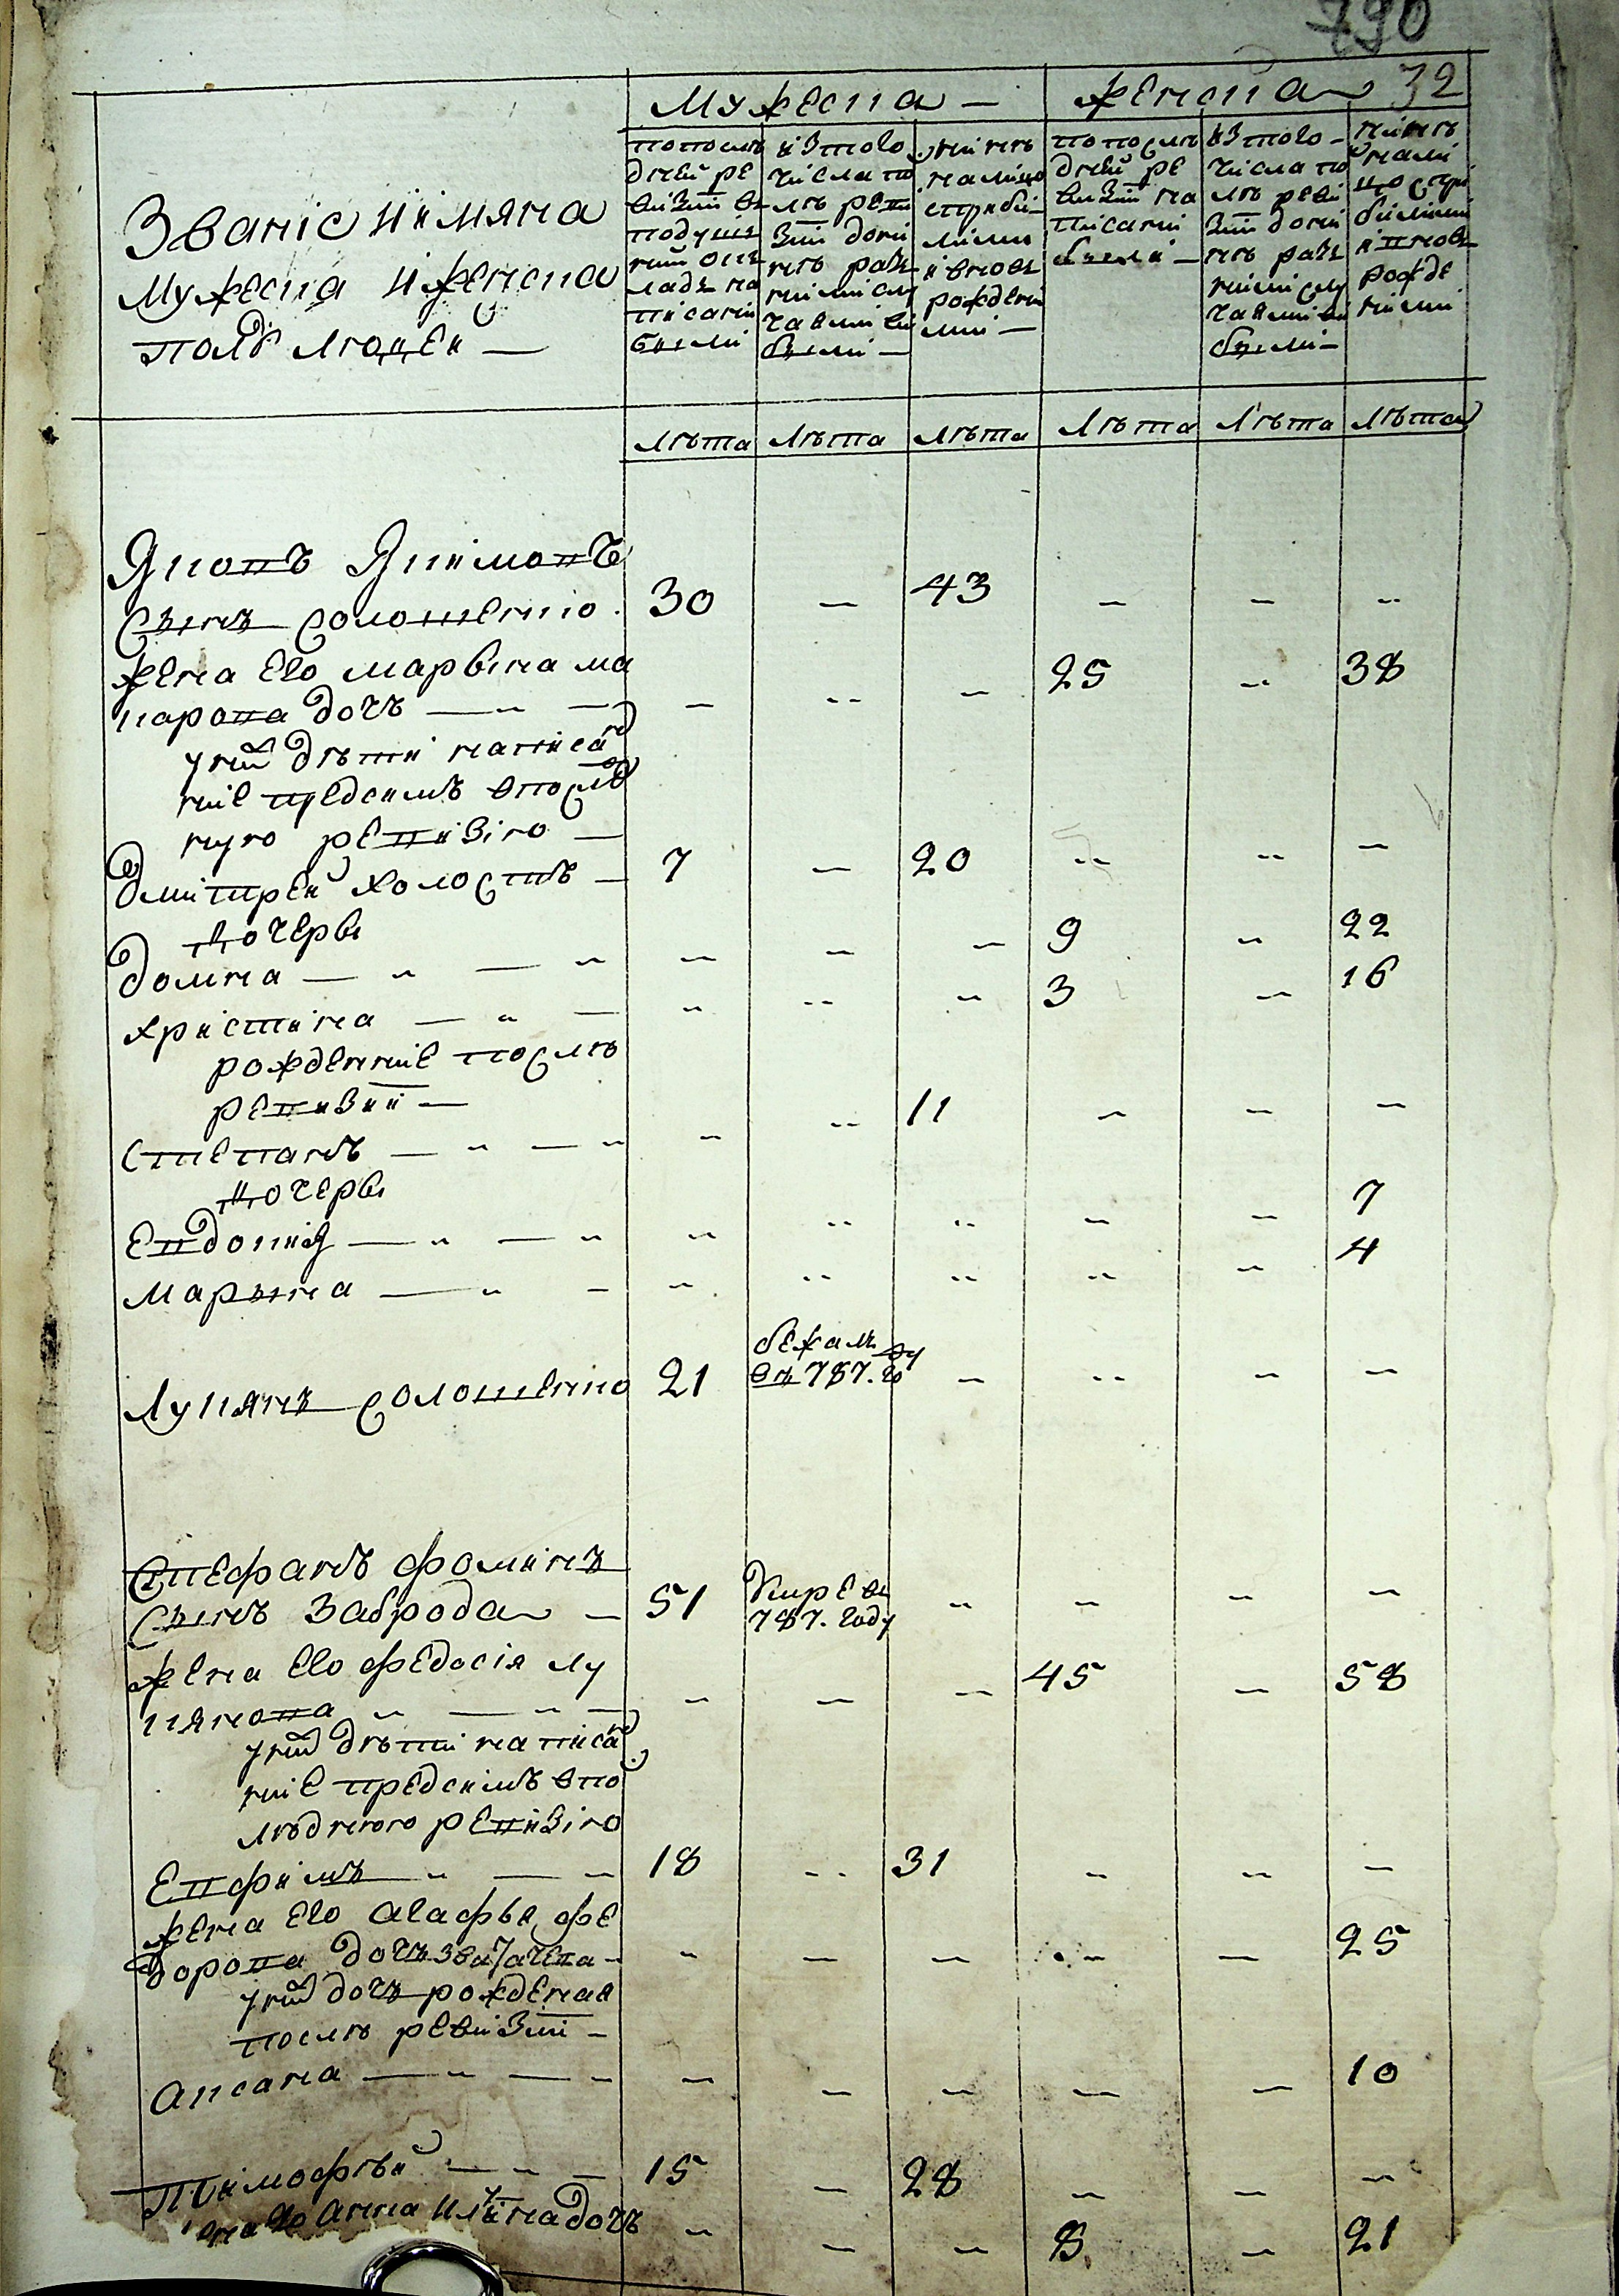 790
32
Мужеска — женска
Званіе и имяна
Мужеска и женска
полу людей —
попослѣ
дней ре
визіи въ
подуш
ний ок
ладъ на
писани
были
изтого
числа по
слѣ реви
зіи дони
нѣ разъ
ними слу
чаями ви
были —
нинѣ
налицо
сприбы
лими
и вновь
рожденни
ми —
попослѣ
дней ре
визіи на
писани
были —
изтого —
числа по
слѣ реви
зіи дони
нѣ разъ
ними слу
чаями ви
были —
нинѣ
нали
цо спри
былими
и вновь
рожде
ними
Лѣта Лѣта Лѣта Лѣта Лѣта Лѣта
Яковъ Якимовъ
Сынъ Солошенко 30 — 43 — — —
жена Его марына ма
карова дочъ — — — — 25 — 38
унихъ дѣти написан
ние предсимъ впослѣд
ную ревизію —
Дмитрей холостъ — 7 — 20 — — —
Дочери
Домна — — — — 9 — 22
Христина — — — — 3 — 16
рожденние послѣ
ревизии —
Степанъ — — — 11 — — —
Дочери
Евдокия — — — — — — 7
Марына — — — — — — 4
Лукянъ Солошенко 21 бежалъ въ 787. году — — — —
Стефанъ Фоминъ
Сынъ Заброда — 51 Умре въ 787. году — — — —
жена Его федосія лу
кянова — — — — 45 — 58
унихъ дѣти написан
ние предсимъ впо
слѣднюю ревизію
Евфимъ — 18 — 31 — — —
жена Его агафья фе
дорова дочъ — — — — — 25
унихъ дочъ рожденая
послѣ ревизіи —
Оксана — — — — — — 10
Тимофѣй — 15 — 28 — — —
Его Анна дочъ — — — 8 — 21